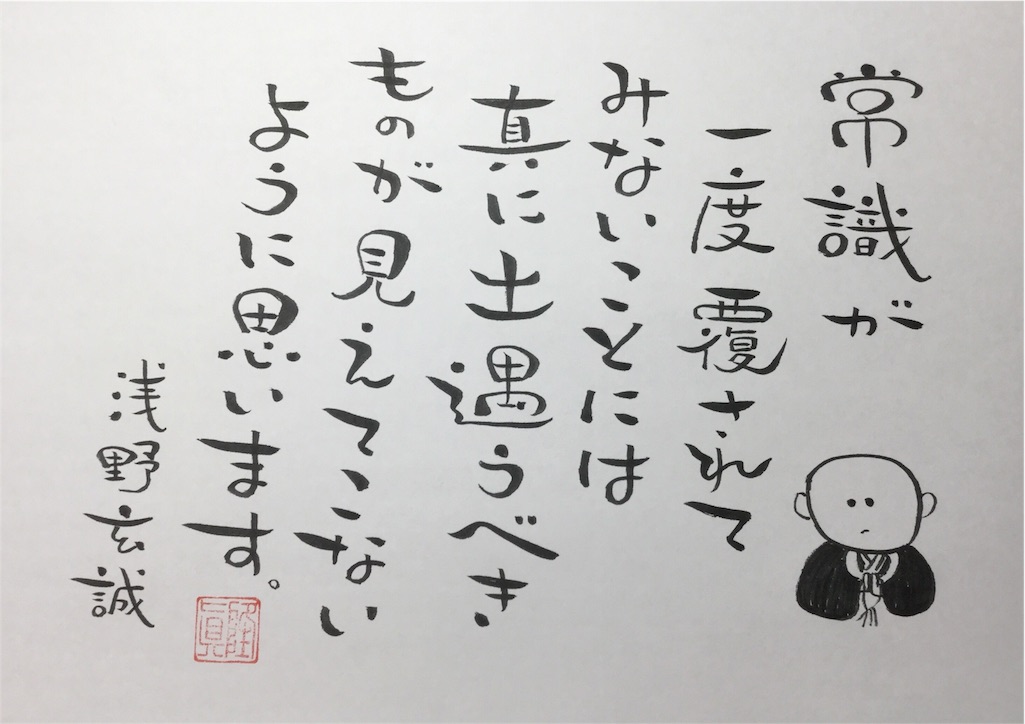 常識が
一度覆されて
みないことには
真に出遇うべき
ものが見えてこない
ように思います。
浅野玄誠